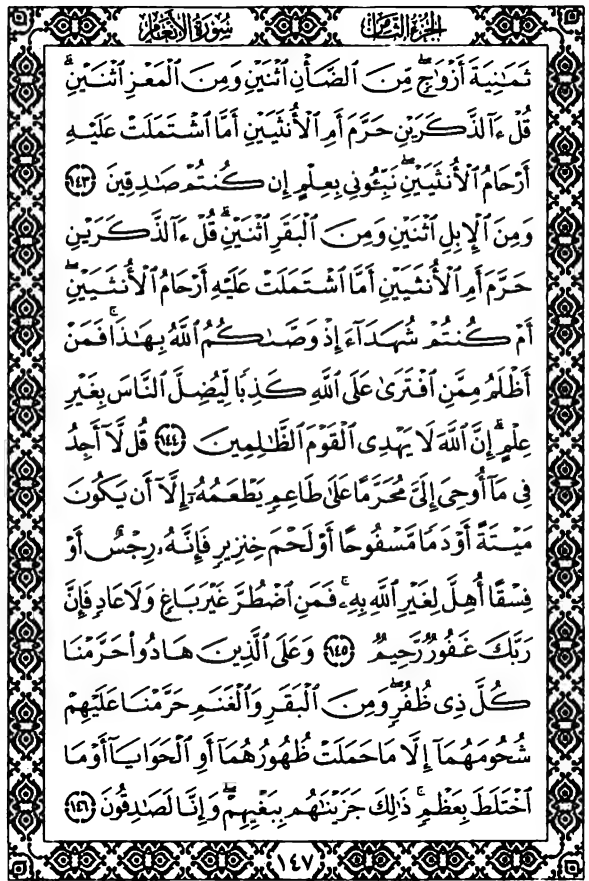 الجزء الثامن
سورة الأنعام
ثَمَٰنِيَةَ أَزۡوَٰجٖۖ مِّنَ ٱلضَّأۡنِ ٱثۡنَيۡنِ وَمِنَ ٱلۡمَعۡزِ ٱثۡنَيۡنِۗ
قُلۡ ءَآلذَّكَرَيۡنِ حَرَّمَ أَمِ ٱلۡأُنثَيَيۡنِ أَمَّا ٱشۡتَمَلَتۡ عَلَيۡهِ
أَرۡحَامُ ٱلۡأُنثَيَيۡنِۖ نَبِّـُٔونِي بِعِلۡمٍ إِن كُنتُمۡ صَٰدِقِينَ ١٤٣
وَمِنَ ٱلۡإِبِلِ ٱثۡنَيۡنِ وَمِنَ ٱلۡبَقَرِ ٱثۡنَيۡنِۗ قُلۡ ءَآلذَّكَرَيۡنِ
حَرَّمَ أَمِ ٱلۡأُنثَيَيۡنِ أَمَّا ٱشۡتَمَلَتۡ عَلَيۡهِ أَرۡحَامُ ٱلۡأُنثَيَيۡنِۖ
أَمۡ كُنتُمۡ شُهَدَآءَ إِذۡ وَصَّىٰكُمُ ٱللَّهُ بِهَٰذَاۚ فَمَنۡ
أَظۡلَمُ مِمَّنِ ٱفۡتَرَىٰ عَلَى ٱللَّهِ كَذِبٗا لِّيُضِلَّ ٱلنَّاسَ بِغَيۡرِ
عِلۡمٍۚ إِنَّ ٱللَّهَ لَا يَهۡدِي ٱلۡقَوۡمَ ٱلظَّٰلِمِينَ ١٤٤ قُل لَّآ أَجِدُ
فِي مَآ أُوحِيَ إِلَيَّ مُحَرَّمًا عَلَىٰ طَاعِمٖ يَطۡعَمُهُۥٓ إِلَّآ أَن يَكُونَ
مَيۡتَةً أَوۡ دَمٗا مَّسۡفُوحًا أَوۡ لَحۡمَ خِنزِيرٖ فَإِنَّهُۥ رِجۡسٌ أَوۡ
فِسۡقًا أُهِلَّ لِغَيۡرِ ٱللَّهِ بِهِۦۚ فَمَنِ ٱضۡطُرَّ غَيۡرَ بَاغٖ وَلَا عَادٖ فَإِنَّ
رَبَّكَ غَفُورٞ رَّحِيمٞ ١٤٥ وَعَلَى ٱلَّذِينَ هَادُواْ حَرَّمۡنَا
كُلَّ ذِي ظُفُرٖۖ وَمِنَ ٱلۡبَقَرِ وَٱلۡغَنَمِ حَرَّمۡنَا عَلَيۡهِمۡ
شُحُومَهُمَآ إِلَّا مَا حَمَلَتۡ ظُهُورُهُمَآ أَوِ ٱلۡحَوَايَآ أَوۡ مَا
ٱخۡتَلَطَ بِعَظۡمٖۚ ذَٰلِكَ جَزَيۡنَٰهُم بِبَغۡيِهِمۡۖ وَإِنَّا لَصَٰدِقُونَ ١٤٦
١٤٧